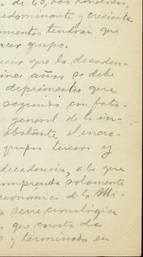 de 60, dos
predominante y creciente
mientos tendran que
grupo.
que la decaden-
años se debe
deprimentes que
segundo con
general de la in-
obstante el incre-
grupos tercero y
decadencia, a lo que
comprende solamente
economica de la Mi-
serie cronológica
que consta de
y terminada en